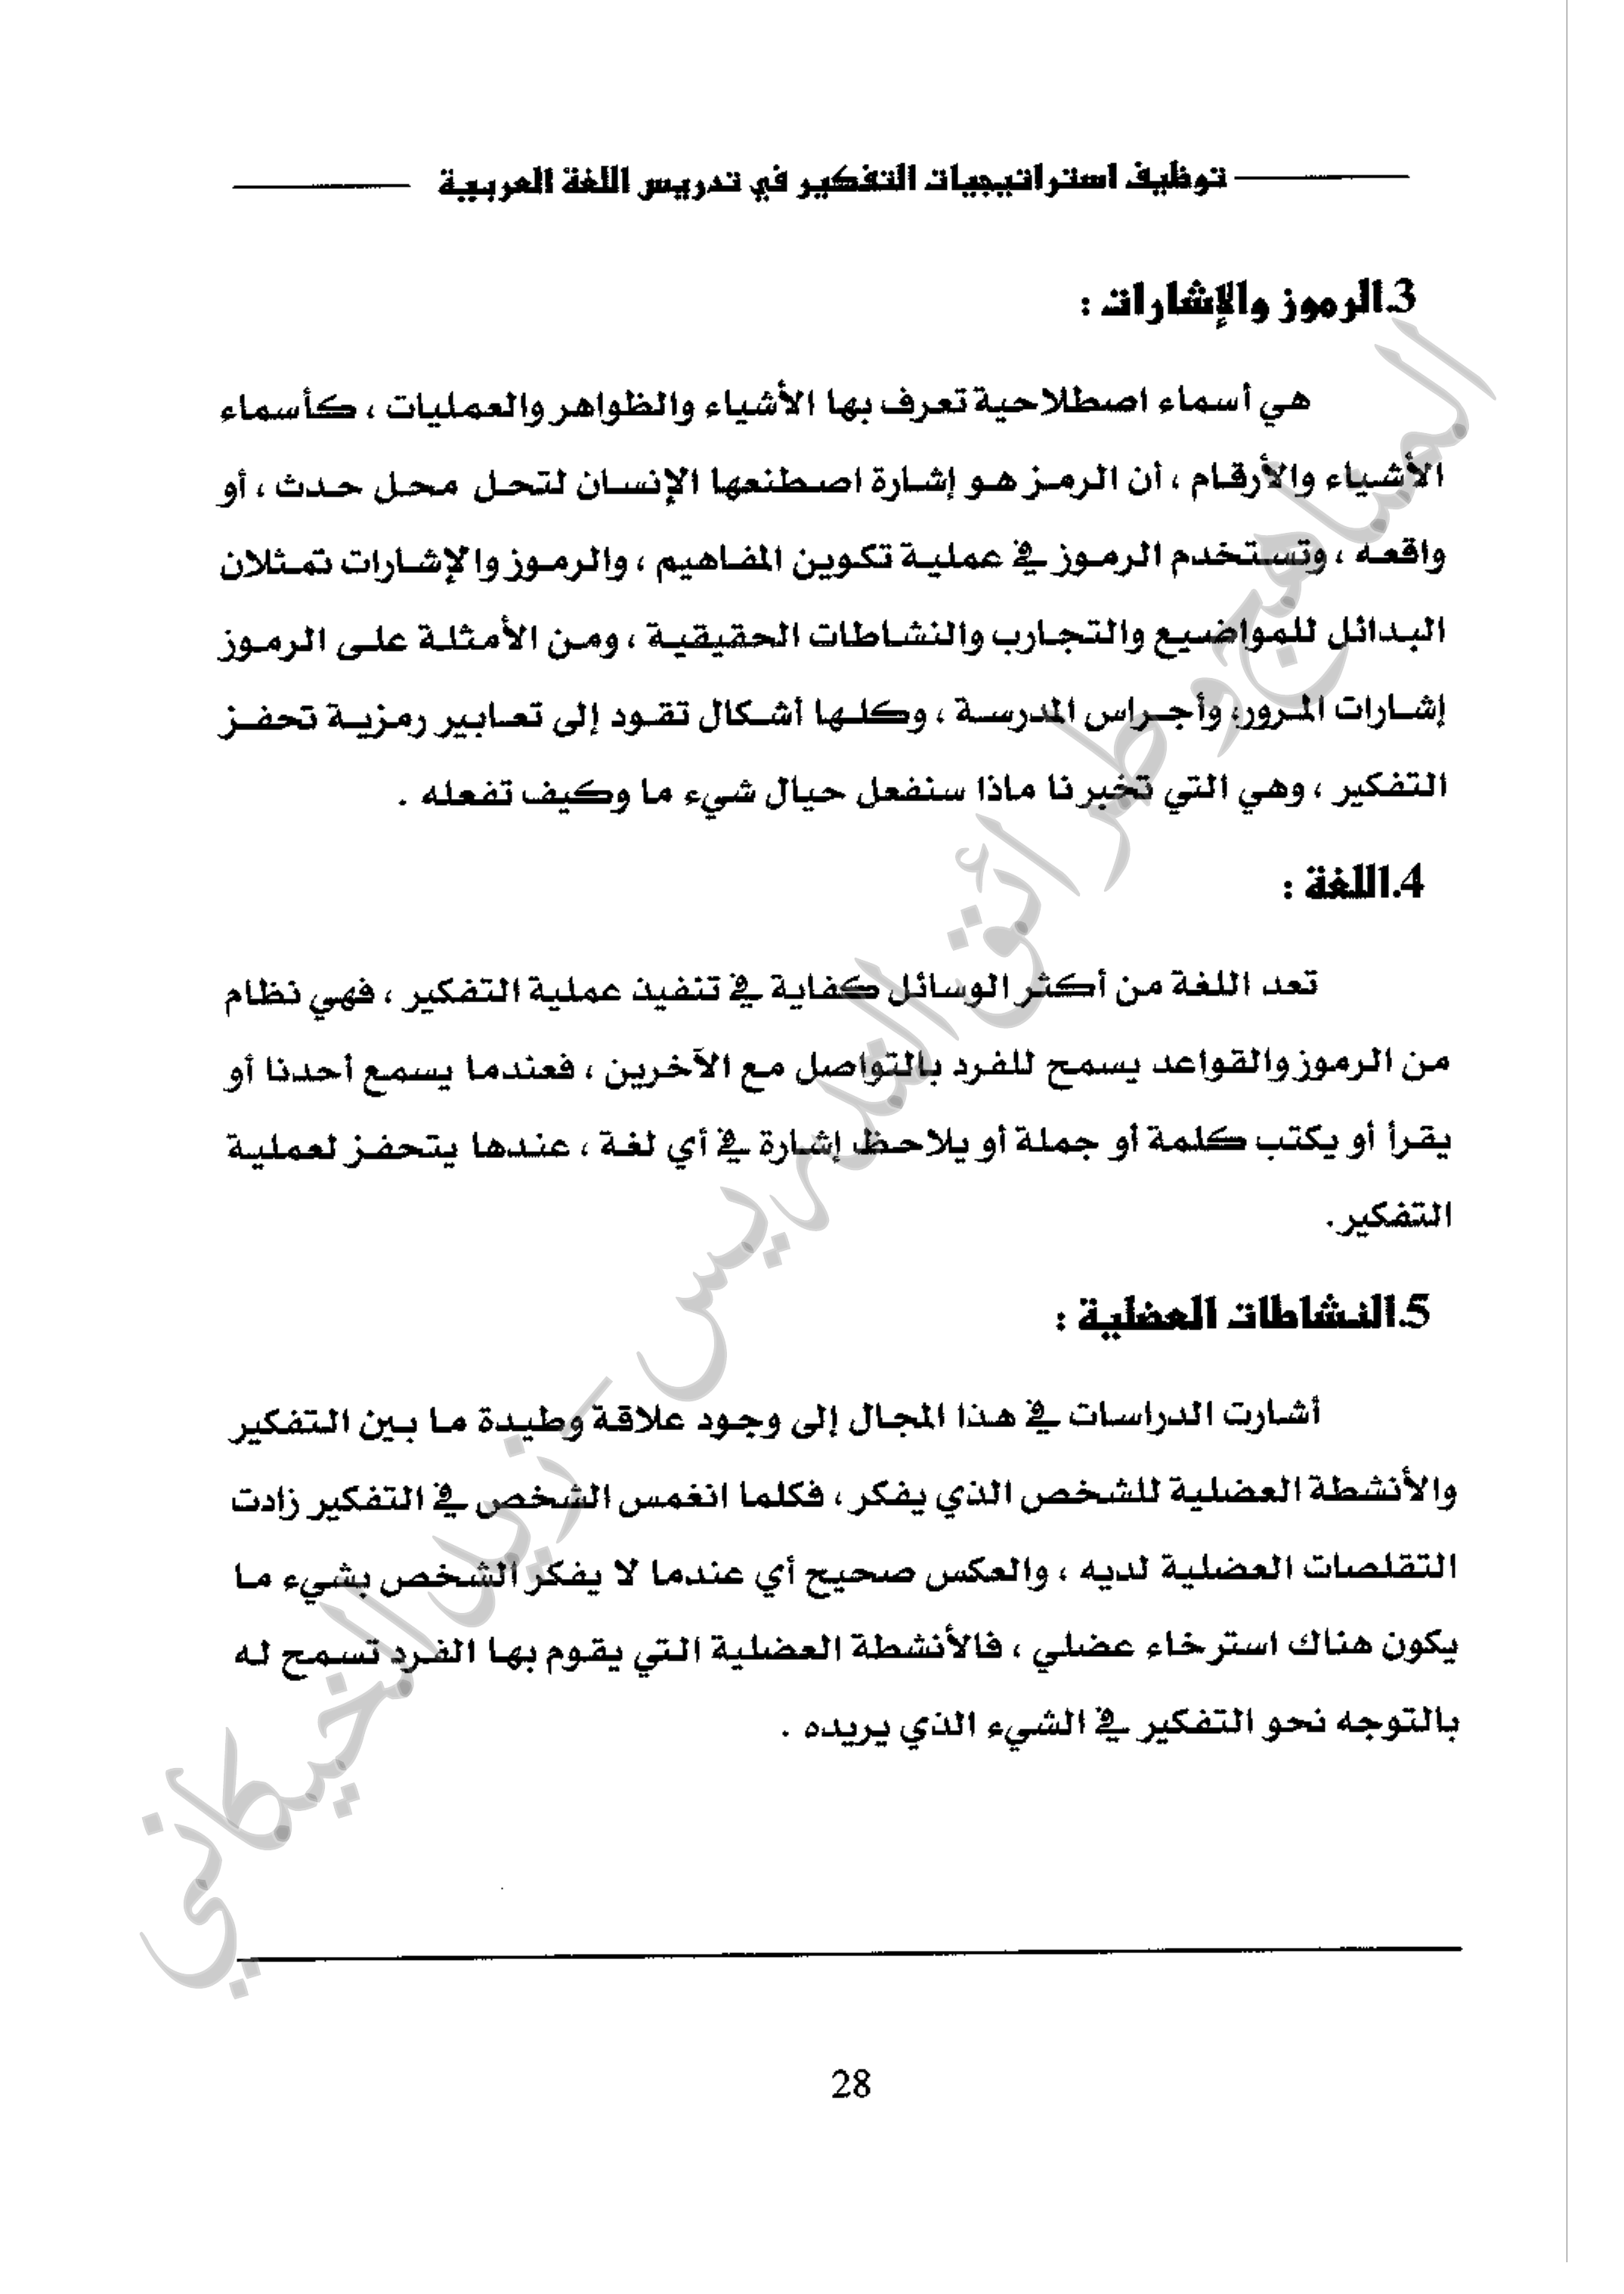 توظيف استراتيجيات التفكير في تدريس اللغة العربية
3.الرموز والإشارات :
هي أسماء اصطلاحية تعرف بها الأشياء والظواهر والعمليات ، كأسماء
الأشياء والأرقام ، أن الرمز هو إشارة اصطنعها الإنسان لتحل محل حدث ، أو
واقعه ، وتستخدم الرموز في عملية تكوين المفاهيم ، والرموز والإشارات تمثلان
البدائل للمواضيع والتجارب والنشاطات الحقيقية ، ومن الأمثلة على الرموز
إشارات المرور، وأجراس المدرسة ، وكلها أشكال تقود إلى تعابير رمزية تحفز
التفكير ، وهي التي تخبرنا ماذا سنفعل حيال شيء ما وكيف تفعله .
4.اللغة :
تعد اللغة من أكثر الوسائل كفاية في تنفيذ عملية التفكير ، فهي نظام
من الرموز والقواعد يسمح للفرد بالتواصل مع الآخرين ، فعندما يسمع أحدنا أو
يقرأ أو يكتب كلمة أو جملة أو يلاحظ إشارة في أي لغة ، عندها يتحفز لعملية
التفكير.
5.النشاطات العضلية :
أشارت الدراسات في هذا المجال إلى وجود علاقة وطيدة ما بين التفكير
والأنشطة العضلية للشخص الذي يفكر ، فكلما انغمس الشخص في التفكير زادت
التقلصات العضلية لديه ، والعكس صحيح أي عندما لا يفكر الشخص بشيء ما
يكون هناك استرخاء عضلي ، فالأنشطة العضلية التي يقوم بها الفرد تسمح له
بالتوجه نحو التفكير في الشيء الذي يريده .
28
المناهج وطرائق التدريس - نبيل الخيكاني